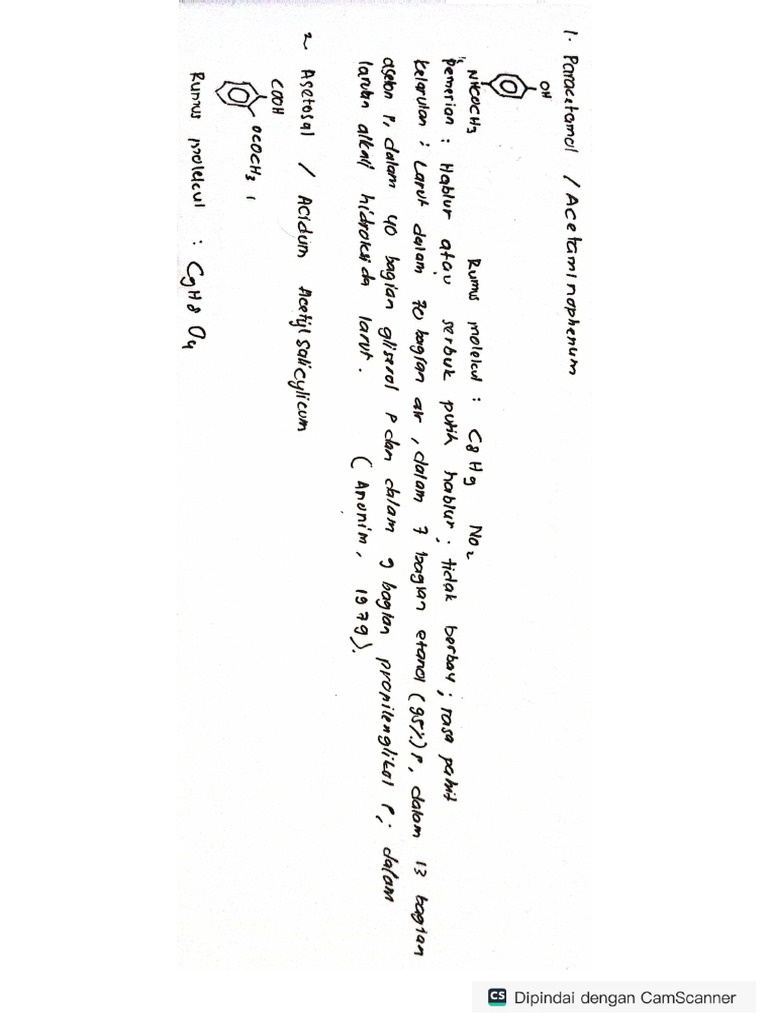 1. Paracetamol / Acetaminophenum
OH
NHCOCH3
Rumus molekul : C8 H9 NO2
Pemerian : Hablur atau serbuk putih hablur; tidak berbau; rasa pahit
Kelarutan : Larut dalam 70 bagian air, dalam 7 bagian etanol (95%) P, dalam 13 bagian
aseton P, dalam 40 bagian gliserol P dan dalam 9 bagian propilenglikol P; dalam
larutan alkali hidroksida larut. (Anonim, 1979).
2 Asetosal / Acidum Acetylsalicylicum
COOH
OCOCH3
Rumus molekul : C9H8 O4
CS Dipindai dengan CamScanner